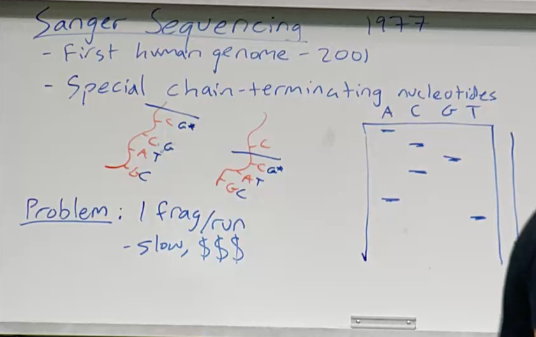 Sanger Sequencing 1977
- First human genome - 2001
- Special chain-terminating nucleotides
A C G T
C G*
C G
A T
G C
C
C G*
A T
G C
Problem: 1 frag/run
- slow, $$$